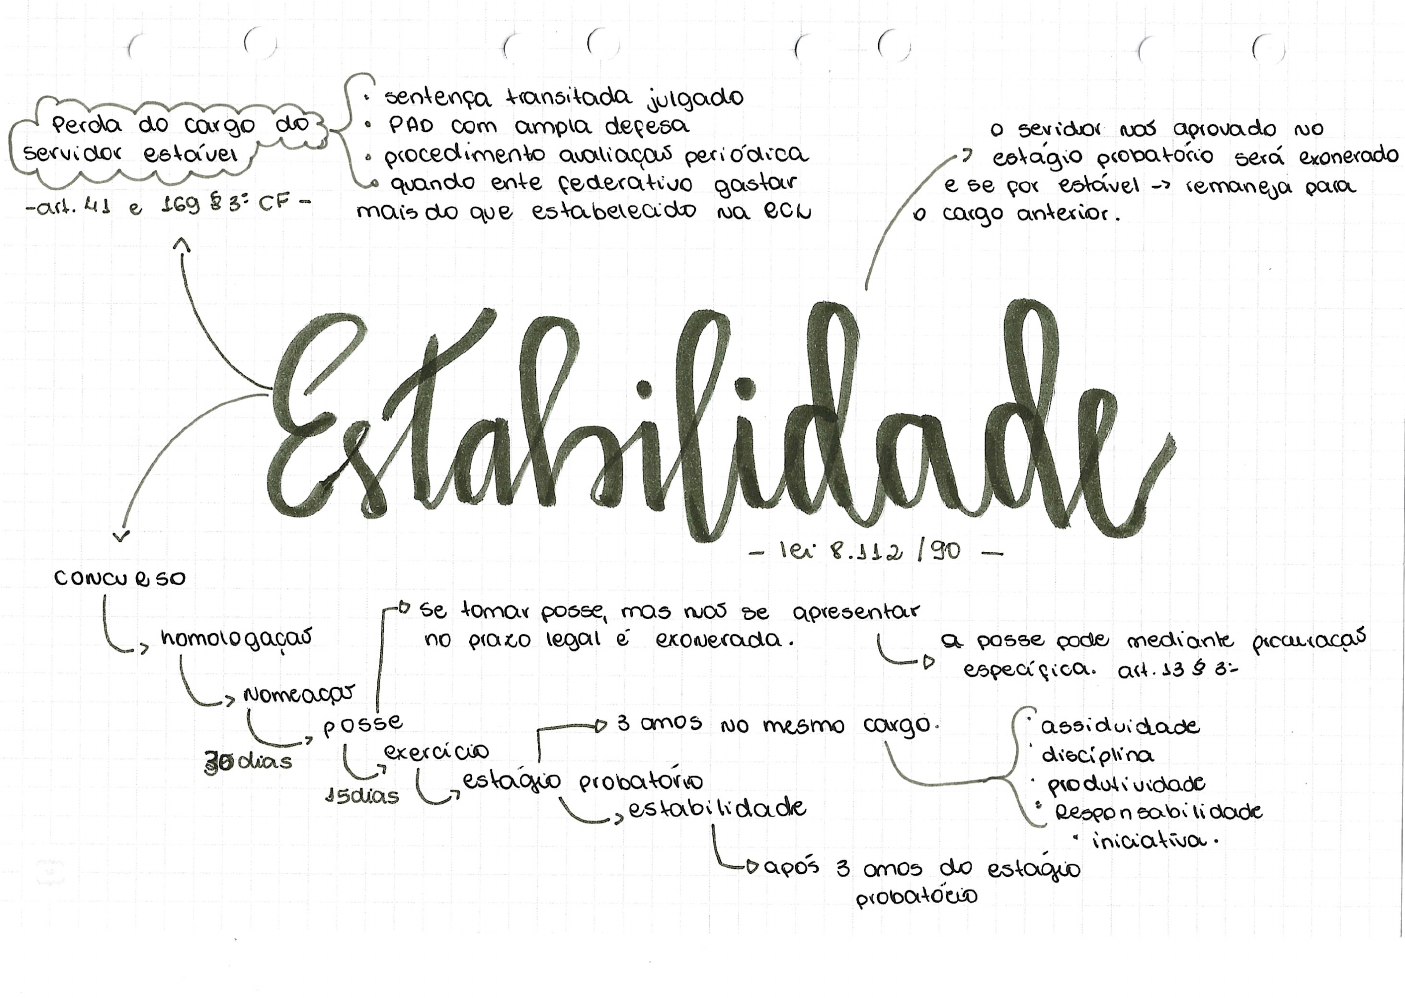 Perda do cargo do
servidor estável
-art. 41 e 169 § 3º CF -
· sentença transitada julgado
· PAD com ampla defesa
· procedimento avaliação periódica
· quando ente federativo gastar
mais do que estabelecido na
o servidor não aprovado no
estágio probatório será exonerado
e se for estável -> remaneja para
o cargo anterior.
Estabilidade
- lei 8.112 /90 -
concurso
homologação
nomeação
30 dias
posse
15 dias
exercício
estágio probatório
estabilidade
se tomar posse, mas não se apresentar
no prazo legal é exonerada.
a posse pode mediante procuração
específica. art. 13 § 3º
3 anos no mesmo cargo.
· assiduidade
· disciplina
· produtividade
· Responsabilidade
· iniciativa.
após 3 anos do estágio
probatório